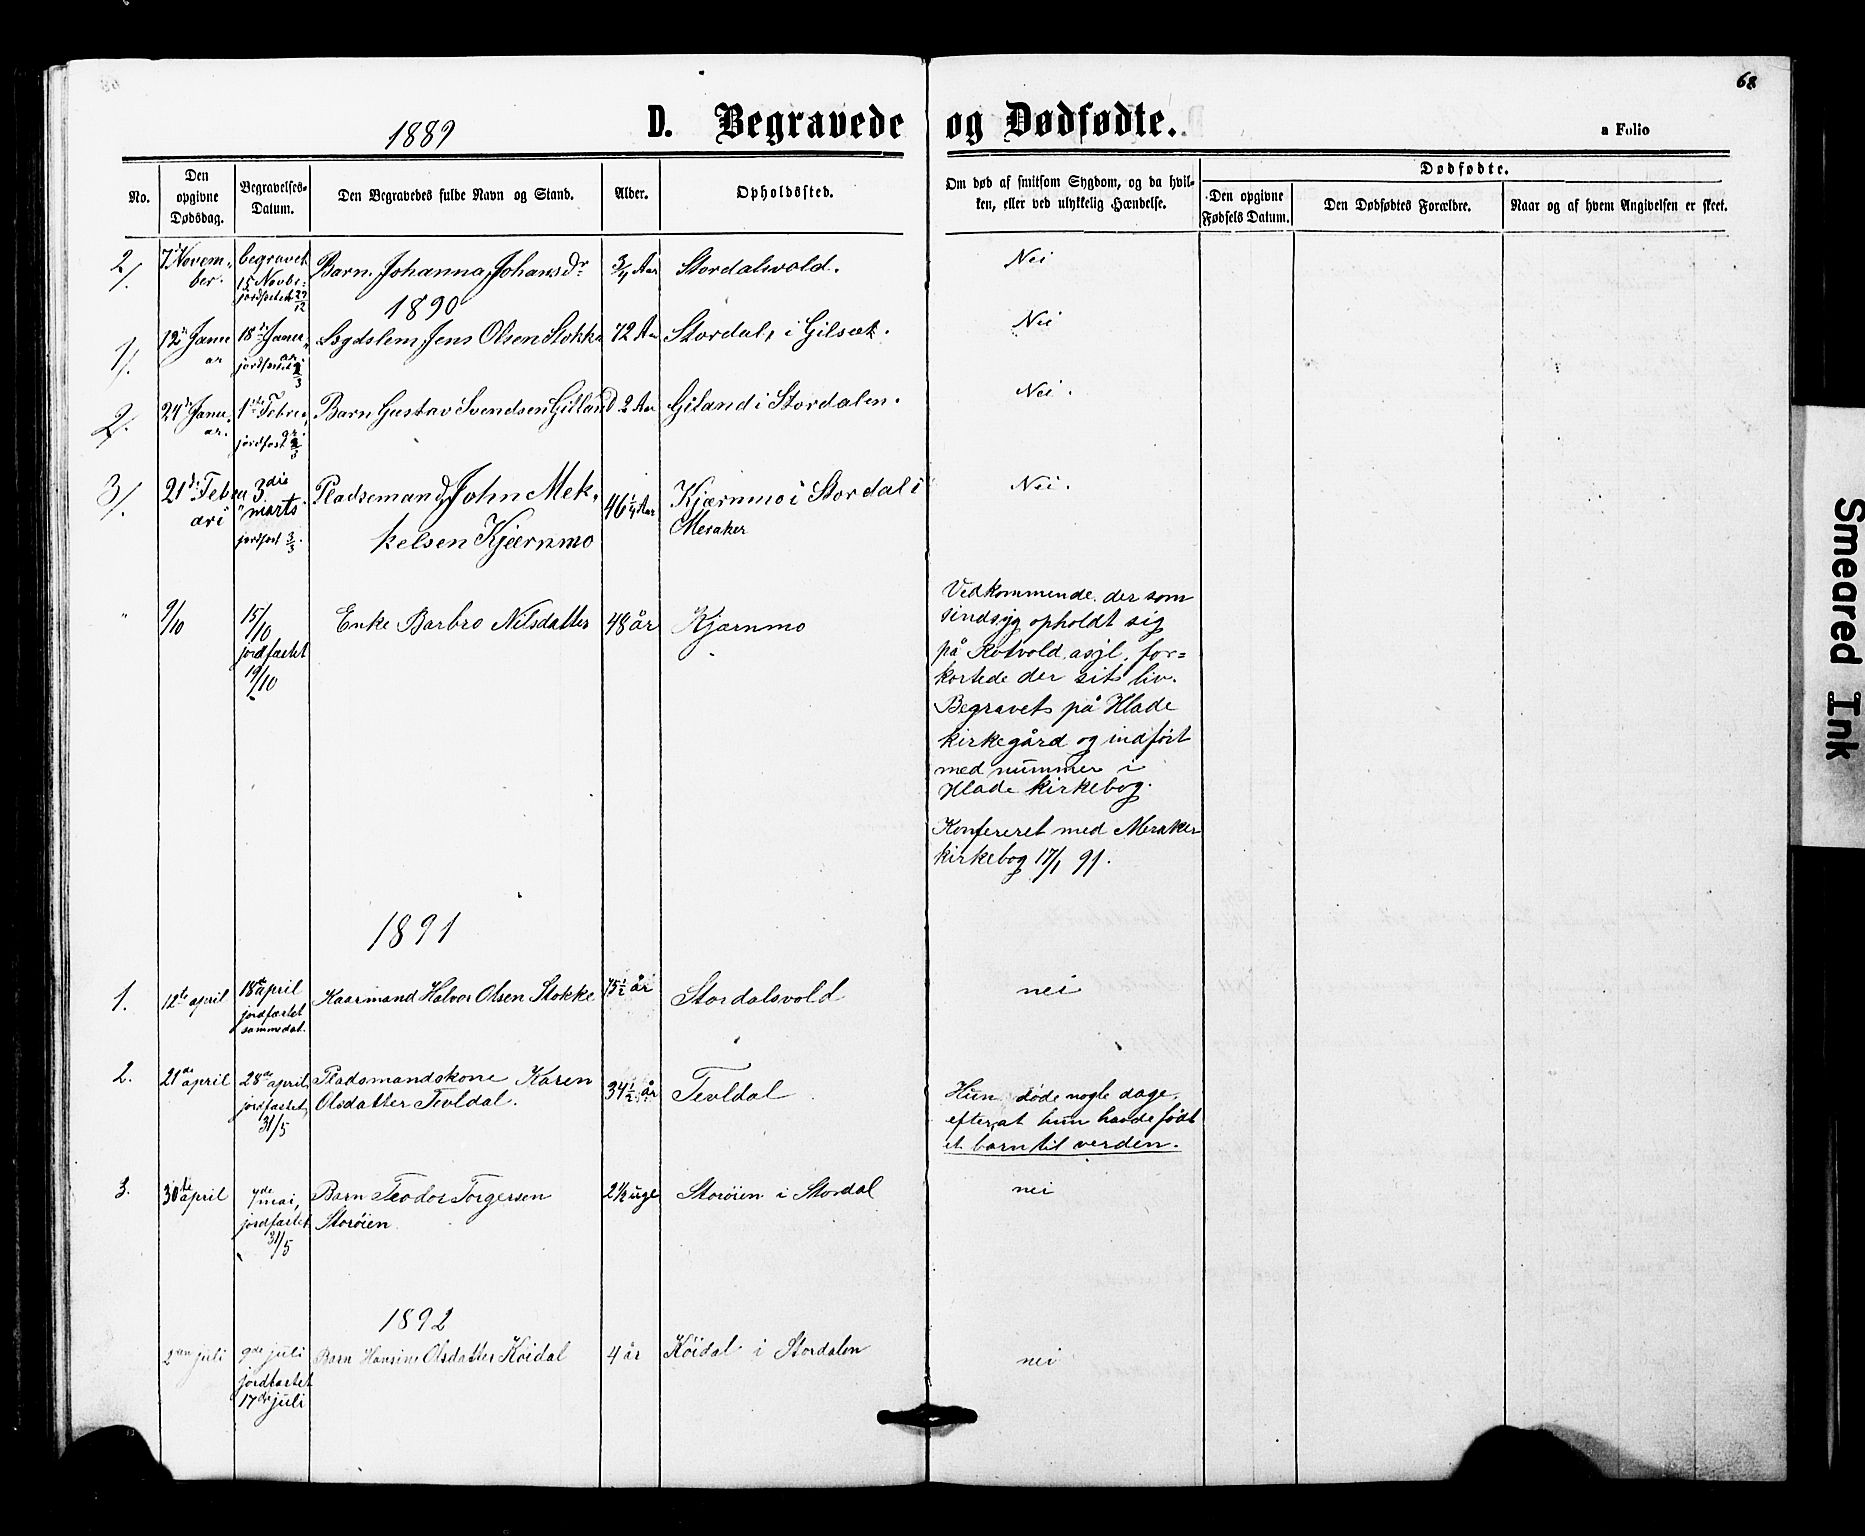 68
1889
D. Begravede og Dødfødte.
a Folio
No.
Den opgivne Dødsdag.
Begravelses-Datum.
Den Begravedes fulde Navn og Stand.
Alder.
Opholdssted.
Om død af smitsom Sygdom, og da hvil-
ken, eller ved ulykkelig Hændelse.
Dødfødte.
Den opgivne Fødsels Datum.
Den Dødfødtes Forældre.
Naar og af hvem Angivelsen er skeet.
2/. 7 Novem- begravet Barn Johanna Johansdr 3/4 Aar Stordalsvold. Nei
ber. 15 Novbr.
jordfæstet 29/12
1890
1/. 12 Janu 18 Janu Jens Olsen Stokke 72 Aar Stordal, i Gilsæt. Nei
ar ar
jordfæstet /3
2/. 24 Janu 1ste Febru Barn Gustav Svendsen Gilland 2 Aar Giland i Stordalen. Nei.
ar. ar
jordfæst /3
3/. 21 Febru 3die Pladsemand John Mek- 46 1/4 Aar Kjærnmo i Stordal i Nei.
ari marts kelsen Kjærnmo Meraker
jordfæst 3/3.
" 9/10 15/10 Enke Barbro Nilsdatter 48 år Kjærnmo
jordfæstet
19/10
Vedkommende der som
sindsyg opholdt sig
på Rotvold asyl, for=
kortede der sit liv.
Begravets på Hlade
kirkegård og indført
med nummer i
Hlade kirkebog.
Konfereret med Meraker
kirkebog 17/1 91.
1891
1. 12te april 18de april Kaarmand Halvor Olsen Stokke 75 1/2 år Stordalsvold nei
jordfæstet
samme dat.
2. 21de april 28de april, Pladsmandskone Karen 34 1/2 år Tevldal
jordfæstet Olsdatter Tevldal.
31/5
Hun døde nogle dage,
efter, at hun havde født
et barn til verden.
3. 30te april 7de mai, Barn Teodor Torgersen 2 1/2 uge Storøien i Stordal nei
jordfæstet Storøien
31/5
1892
2den juli 9de juli Barn Hansine Olsdatter Köidal 4 år Köidal i Stordalen nei
jordfæstet
17de juli
Smeared Ink